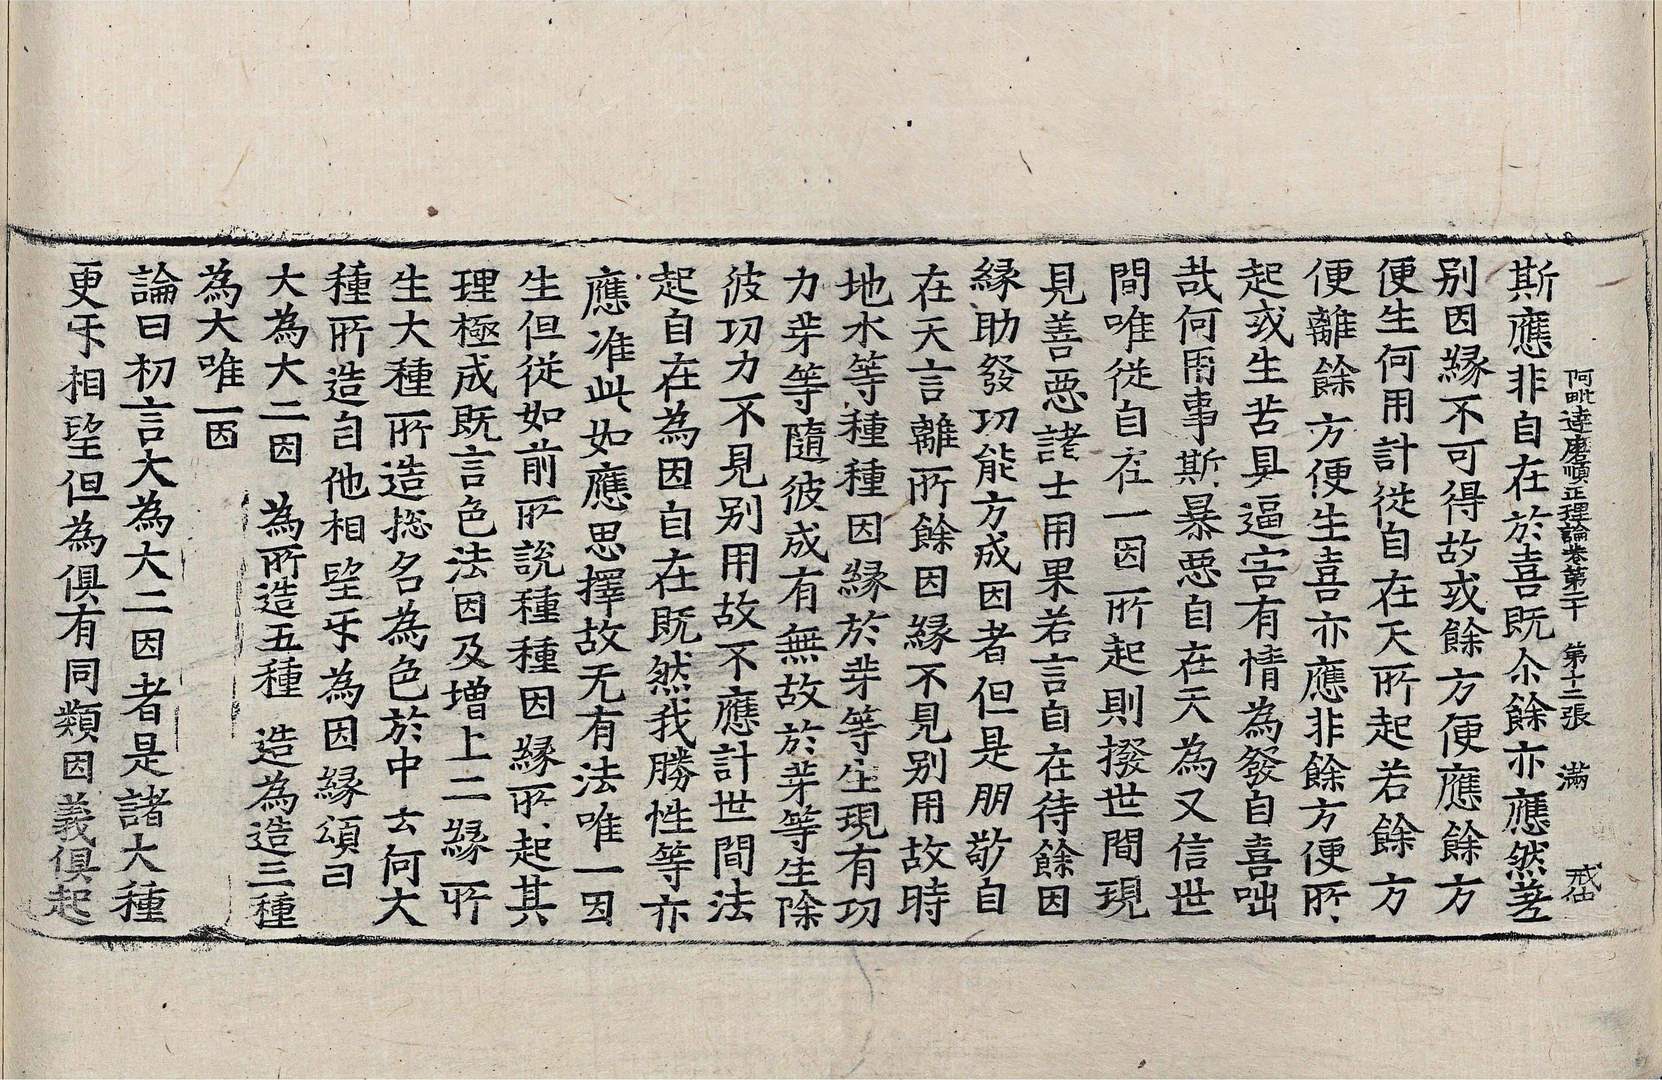 阿毗達磨順正理論卷第二十　第十二張　滿　戒仙
斯應非自在於喜既尒餘亦應然差
别因緣不可得故或餘方便應餘方
便生何用計從自在天所起若餘方
便離餘方便生喜亦應非餘方便所
起或生苦具逼害有情為發自喜咄
哉何用事斯暴惡自在天為又信世
間唯從自在一因所起則撥世間現
見善惡諸士用果若言自在待餘因
緣助發功能方成因者但是朋敬自
在天言離所餘因緣不見别用故時
地水等種種因緣於芽等生現有功
力芽等隨彼成有無故於芽等生除
彼功力不見别用故不應計世間法
起自在為因自在既然我勝性等亦
應准此如應思擇故无有法唯一因
生但從如前所說種種因緣所起其
理極成既言色法因及增上二緣所
生大種所造揔名為色於中云何大
種所造自他相望互為因緣頌曰
大為大二因　為所造五種　造為造三種
為大唯一因
論曰初言大為大二因者是諸大種
更互相望但為俱有同類因義俱起